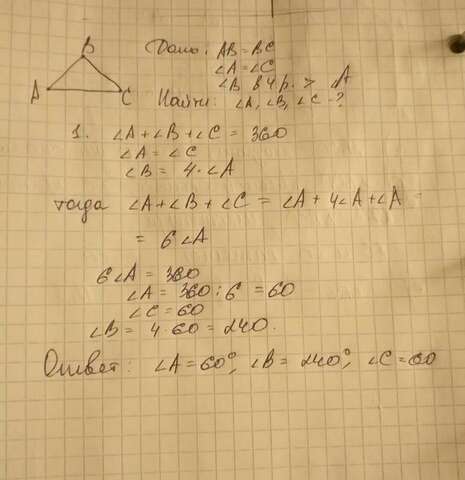 B
A
C
Дано: AB = BC
∠A = ∠C
∠B в 4 р. > ∠A
Найти: ∠A, ∠B, ∠C - ?
1. ∠A + ∠B + ∠C = 360
∠A = ∠C
∠B = 4 · ∠A
тогда ∠A + ∠B + ∠C = ∠A + 4∠A + ∠A =
= 6 ∠A
6∠A = 360
∠A = 360 : 6 = 60
∠C = 60
∠B = 4 · 60 = 240.
Ответ: ∠A = 60°, ∠B = 240°, ∠C = 60